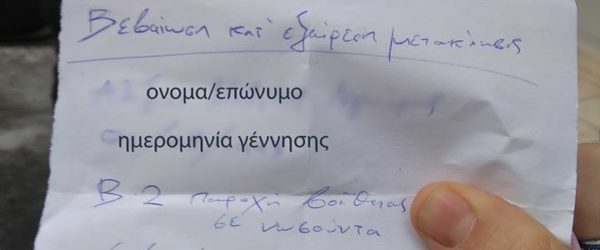 Βεβαίωση κατ' εξαίρεση μετακίνησης
ονομα/επώνυμο
ημερομηνία γέννησης
Β2 παροχή βοήθειας
σε νοσούντα